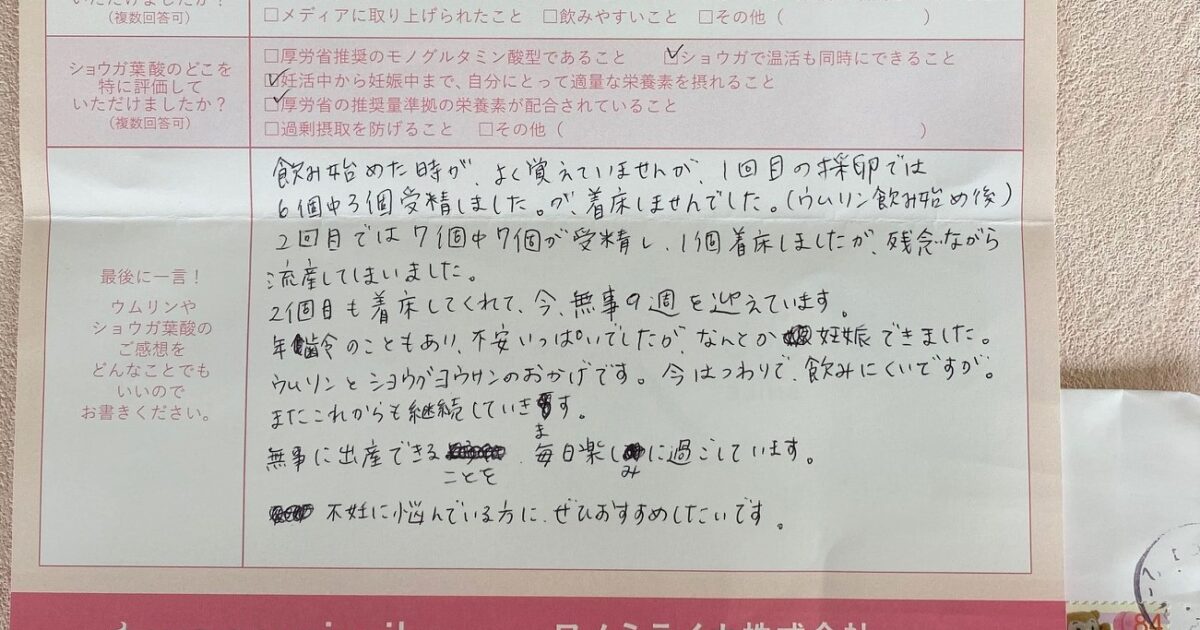 いただけましたか？
(複数回答可)
□メディアに取り上げられたこと □飲みやすいこと □その他（ ）
ショウガ葉酸のどこを
特に評価して
いただけましたか？
(複数回答可)
□厚労省推奨のモノグルタミン酸型であること ☑ショウガで温活も同時にできること
☑妊活中から妊娠中まで、自分にとって適量な栄養素を摂れること
☑厚労省の推奨量準拠の栄養素が配合されていること
□過剰摂取を防げること □その他（ ）
最後に一言！
ウムリンや
ショウガ葉酸の
ご感想を
どんなことでも
いいので
お書きください。
飲み始めた時が、よく覚えていませんが、1回目の採卵では
6個中3個受精しました。が、着床しませんでした。(ウムリン飲み始め後)
2回目では7個中7個が受精し、1個着床しましたが、残念ながら
流産してしまいました。
2個目も着床してくれて、今、無事9週を迎えています。
年齢のこともあり、不安いっぱいでしたが、なんとか妊娠できました。
ウムリンとショウガヨウサンのおかげです。今はつわりで、飲みにくいですが。
またこれからも継続していきます。
無事に出産できることを、毎日楽しみに過ごしています。
不妊に悩んでいる方に、ぜひおすすめしたいです。
84